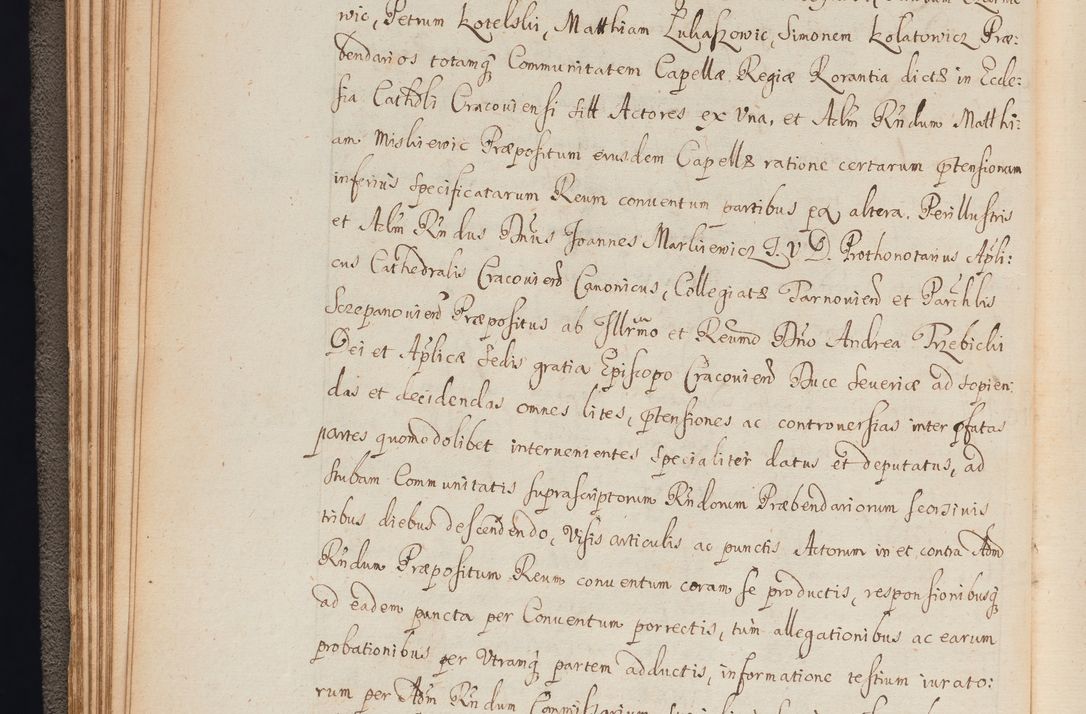 wic, Petrum Kotelski, Matthiam Lukaszowic, Simonem Kolatowicz Præ:
bendarios totamq̃ Communitatem Capellæ Regiæ Rorantia dictæ in Eccle:
sia Cathdli Cracoviensi sitt Actores ex Vna, et Adm Rñdum Matthi:
am Miskiewic Præpositum eiusdem Capellæ ratione certarum p̃tensionum
inferius specificatarum Reum conventum partibus ex altera. Perillustris
et Adm Rñdus Dñus Joannes Markiewicz I. V D. Prothonotarius Apli:
cus Cathedralis Cracovien̄ Canonicus, Collegiatæ Tarnovien̄ et Parchlis
Szczepanovien̄ Præpositus ab Illrmo et Reũmo Dño Andrea Trzebicki
Dei et Aplicæ Sedis gratia Episcopo Cracovien̄ Duce Severiæ ad sopien:
das et decidendas omnes lites, p̃tensiones ac controversias inter p̃fatas
partes quomodolibet intervenientes specialiter datus et deputatus, ad
stubam Communitatis suprascriptorum Rñdorum Præbendariorum seorsivis
tribus diebus descendendo, Visis articulis ac punctis Actorum in et contra Adm
Rñdum Præpositum Reum conventum coram se productis, responsionibusq̃
ad eadem puncta per Conventum porrectis, tum allegationibus ac earum
probationibus per Vtramq̃ partem adductis, informatione testium iurato:
rum per Adm Rñdum Commissarium